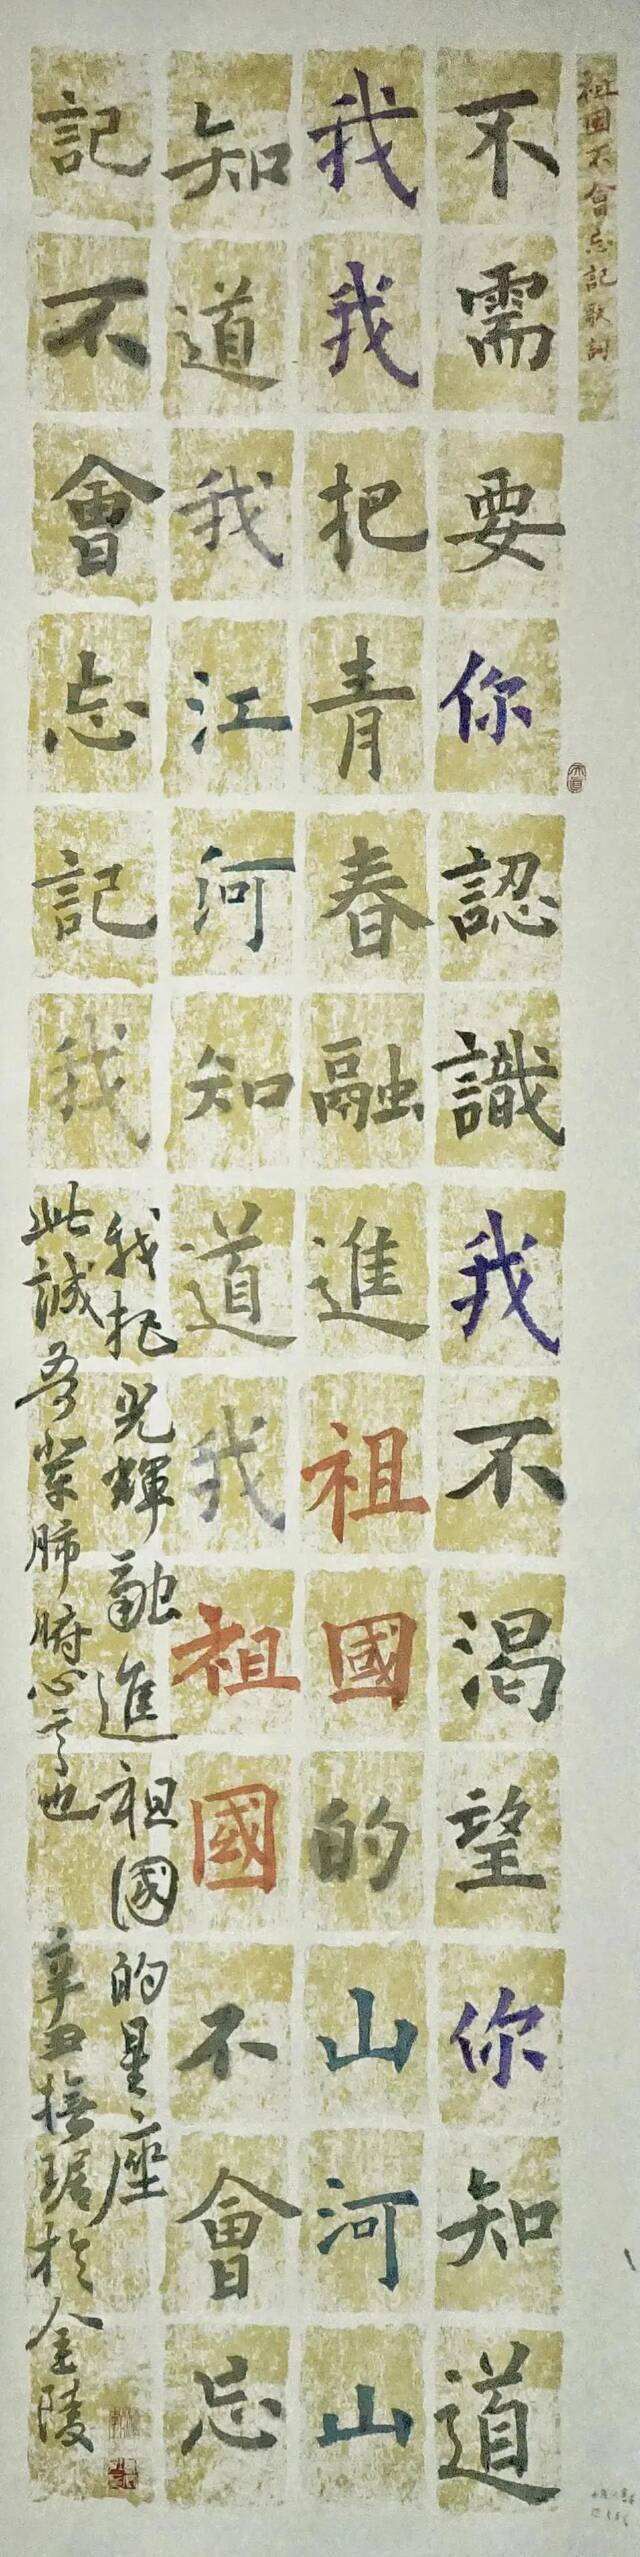 祖国不會忘記歌詞
不需要你認識我不渴望你知道
我我把青春融進祖國的山河山
知道我江河知道我祖國不會忘
記不會忘記我
我把光輝融進祖國的星座
此誠吾輩肺腑心言也
辛丑 於金陵